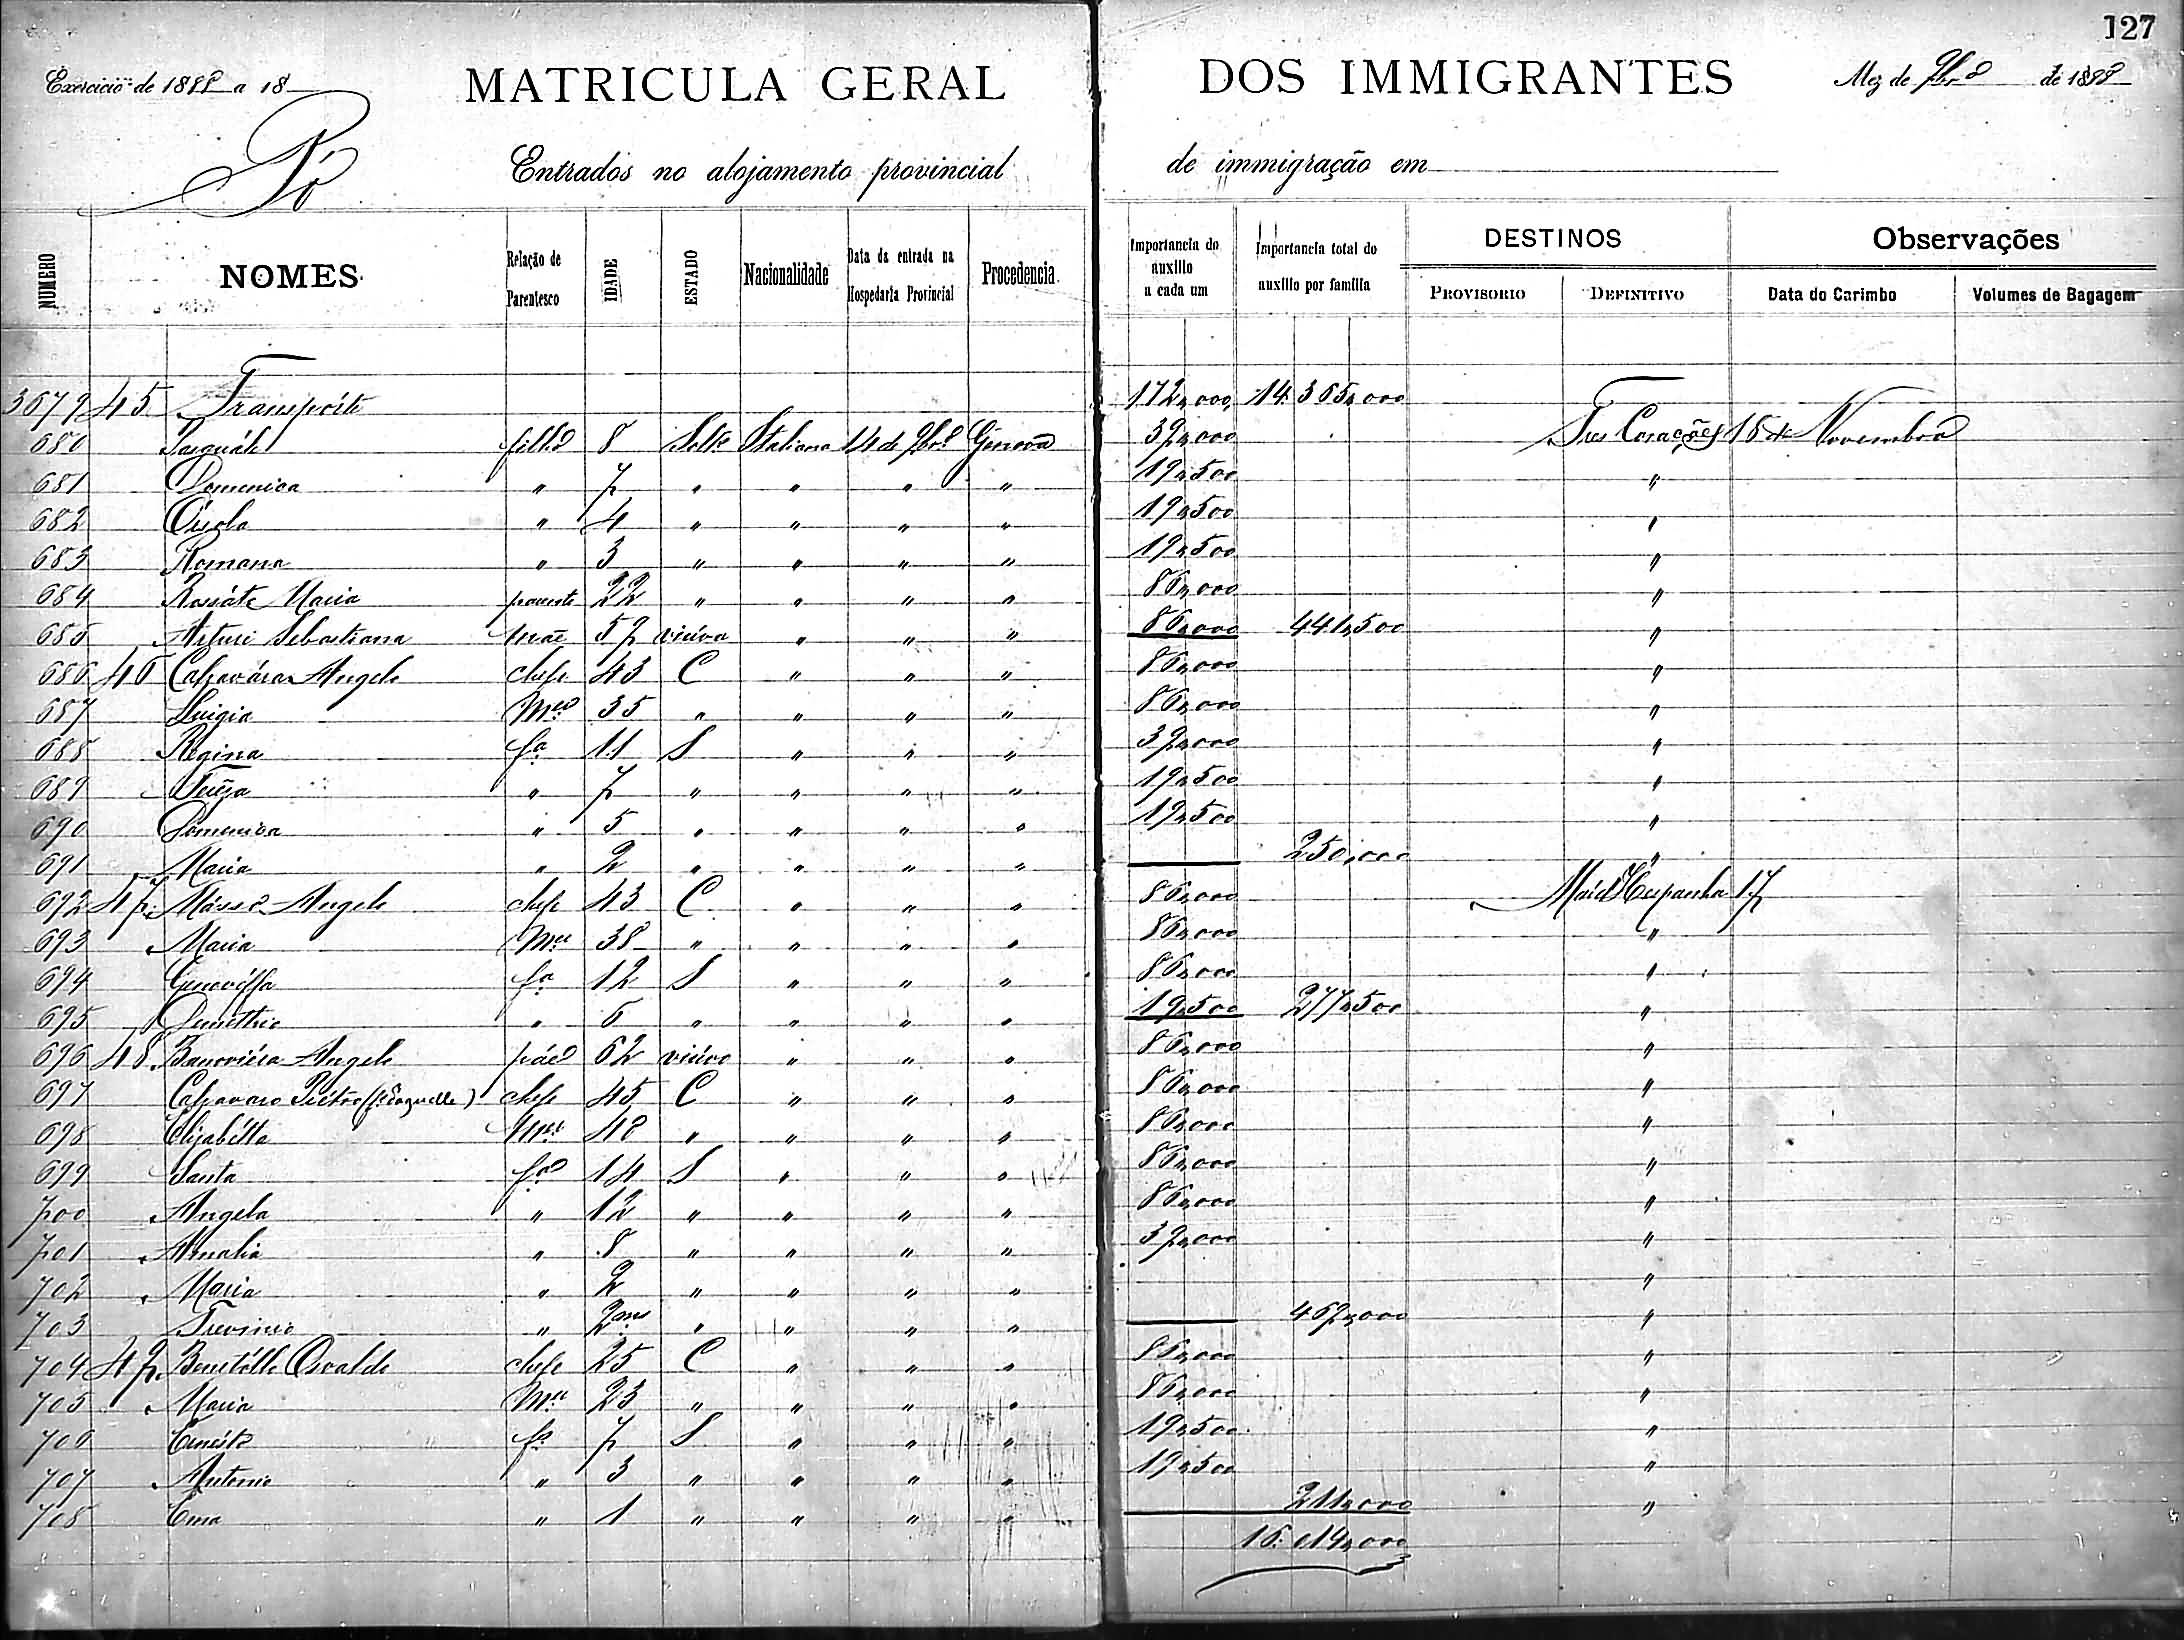 127
Exercicio de 1888 a 18
MATRICULA GERAL DOS IMMIGRANTES
Mez de 9bro de 1888
Pó
Entrados no alojamento provincial de immigração em
NUMERO NOMES Relação de Parentesco IDADE ESTADO Nacionalidade Data da entrada na Hospedaria Provincial Procedencia Importancia do auxilio a cada um Importancia total do auxilio por familia DESTINOS Observações
PROVISORIO DEFINITIVO Data do Carimbo Volumes de Bagagem
3679 45 Transpórte 172,000 14.365,000
680 Pasquále filho 8 Solto Italiana 14 de 9bro Genova 39,000 Tres Corações 16 de Novembro
681 Domenica " 7 " " " " 19,500 "
682 " 4 " " " " 19,500 "
683 Romana " 3 " " " " 19,500 "
684 Rossáto Maria parente 22 " " " " 86,000 "
685 Arturi Sebastiana mãe 59 viúva " " " 86,000 441,500 "
686 46 Calzavára Angelo chefe 43 C " " " 86,000 "
687 Luigia Mer 35 " " " " 86,000 "
688 Regina fa 11 S " " " 39,000 "
689 Tereza " 7 " " " " 19,500 "
690 Domenica " 5 " " " " 19,500 "
691 Maria " 2 " " " " 250,000 "
692 47 Angelo chefe 43 C " " " 86,000 17
693 Maria Mer 38 " " " " 86,000 "
694 Genovéffa fa 12 S " " " 86,000 "
695 Demethrio " 6 " " " " 19,500 277,500 "
696 48 Angelo páe 62 viúvo " " " 86,000 "
697 Calzavaro Piétro chefe 45 C " " " 86,000 "
698 Elizabétta Mer 48 " " " " 86,000 "
699 Santa fa 14 S " " " 86,000 "
700 Angela " 12 " " " " 86,000 "
701 Amalia " 8 " " " " 39,000 "
702 Maria " 2 " " " " "
703 " 2ms " " " " 469,000 "
704 49 Osvaldo chefe 25 C " " " 86,000 "
705 Maria Mer 23 " " " " 86,000 "
706 Ernésto fo 7 S " " " 19,500 "
707 Antonio " 3 " " " " 19,500 "
708 Ema " 1 " " " " 211,000 "
16.014,000